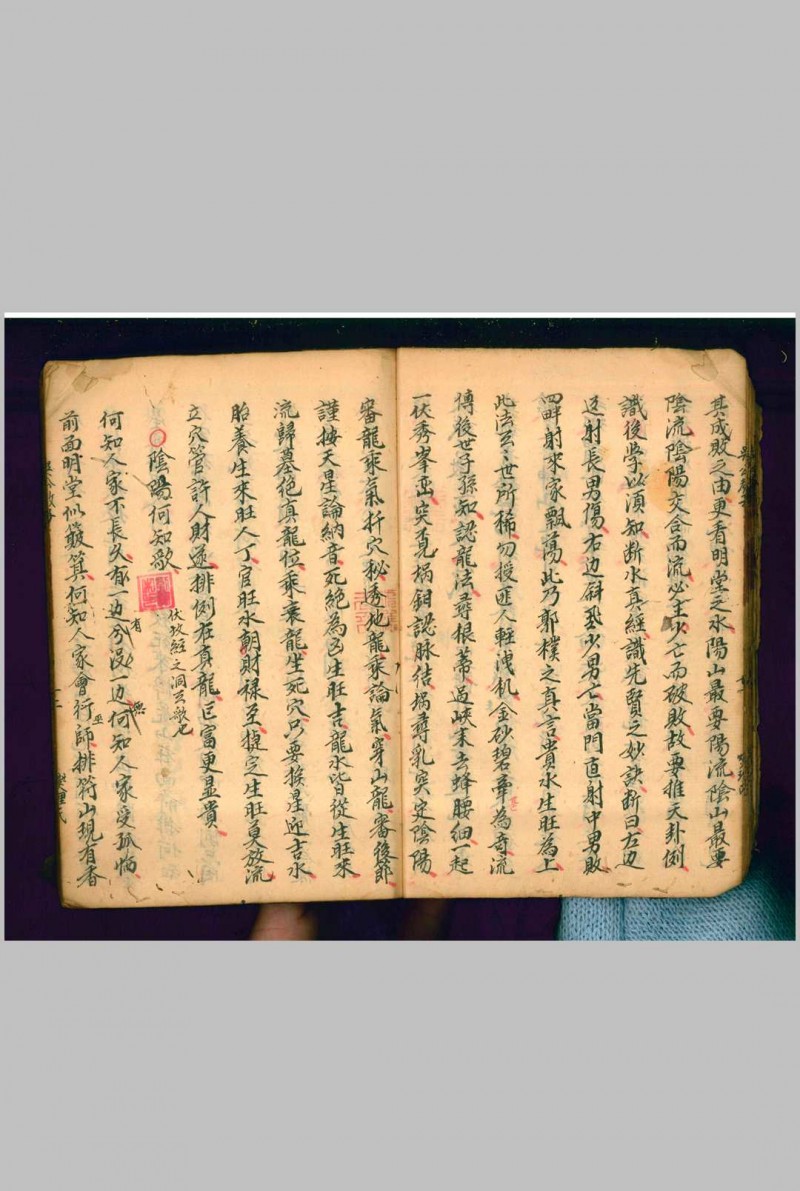 其成敗之由更看明堂之水陽山最要陽流陰山最要
陰流陰陽交合而流必主少亡而破敗故要推天卦例
識後學以須知断水真經識先賢之妙訣断曰左边
返射長男傷右边斜飛少男亡當門直射中男敗
四畔射來家飄蕩此乃郭樸之真言貴水生旺為上
此法云云世所稀勿授匪人輕洩机金砂碧 為奇流
傳後世子孫知認龍法尋根蒂過峽末去蜂腰細一起
一伏秀峯巒突覓堝鉗認脉結堝尋乳突定陰陽
審龍乘氣扦穴秘透地龍乘論氣穿山龍審後節
謹按天星論納音死絕為凶生旺吉龍水皆從生旺來
流歸墓绝真龍位乘衰龍生死穴只要挨星迎吉水
胎養生來旺人丁官旺水朝財禄至㨗定生旺莫放流
立穴管許人財遂排倒在真龍巨富更显貴
○陰陽何知歌
伏攻經之洞云歌也
何知人家不長久有一边兮没一边何知人家受孤恓
有
無
前面明堂似簸箕何知人家會行師排符山現有香
巫